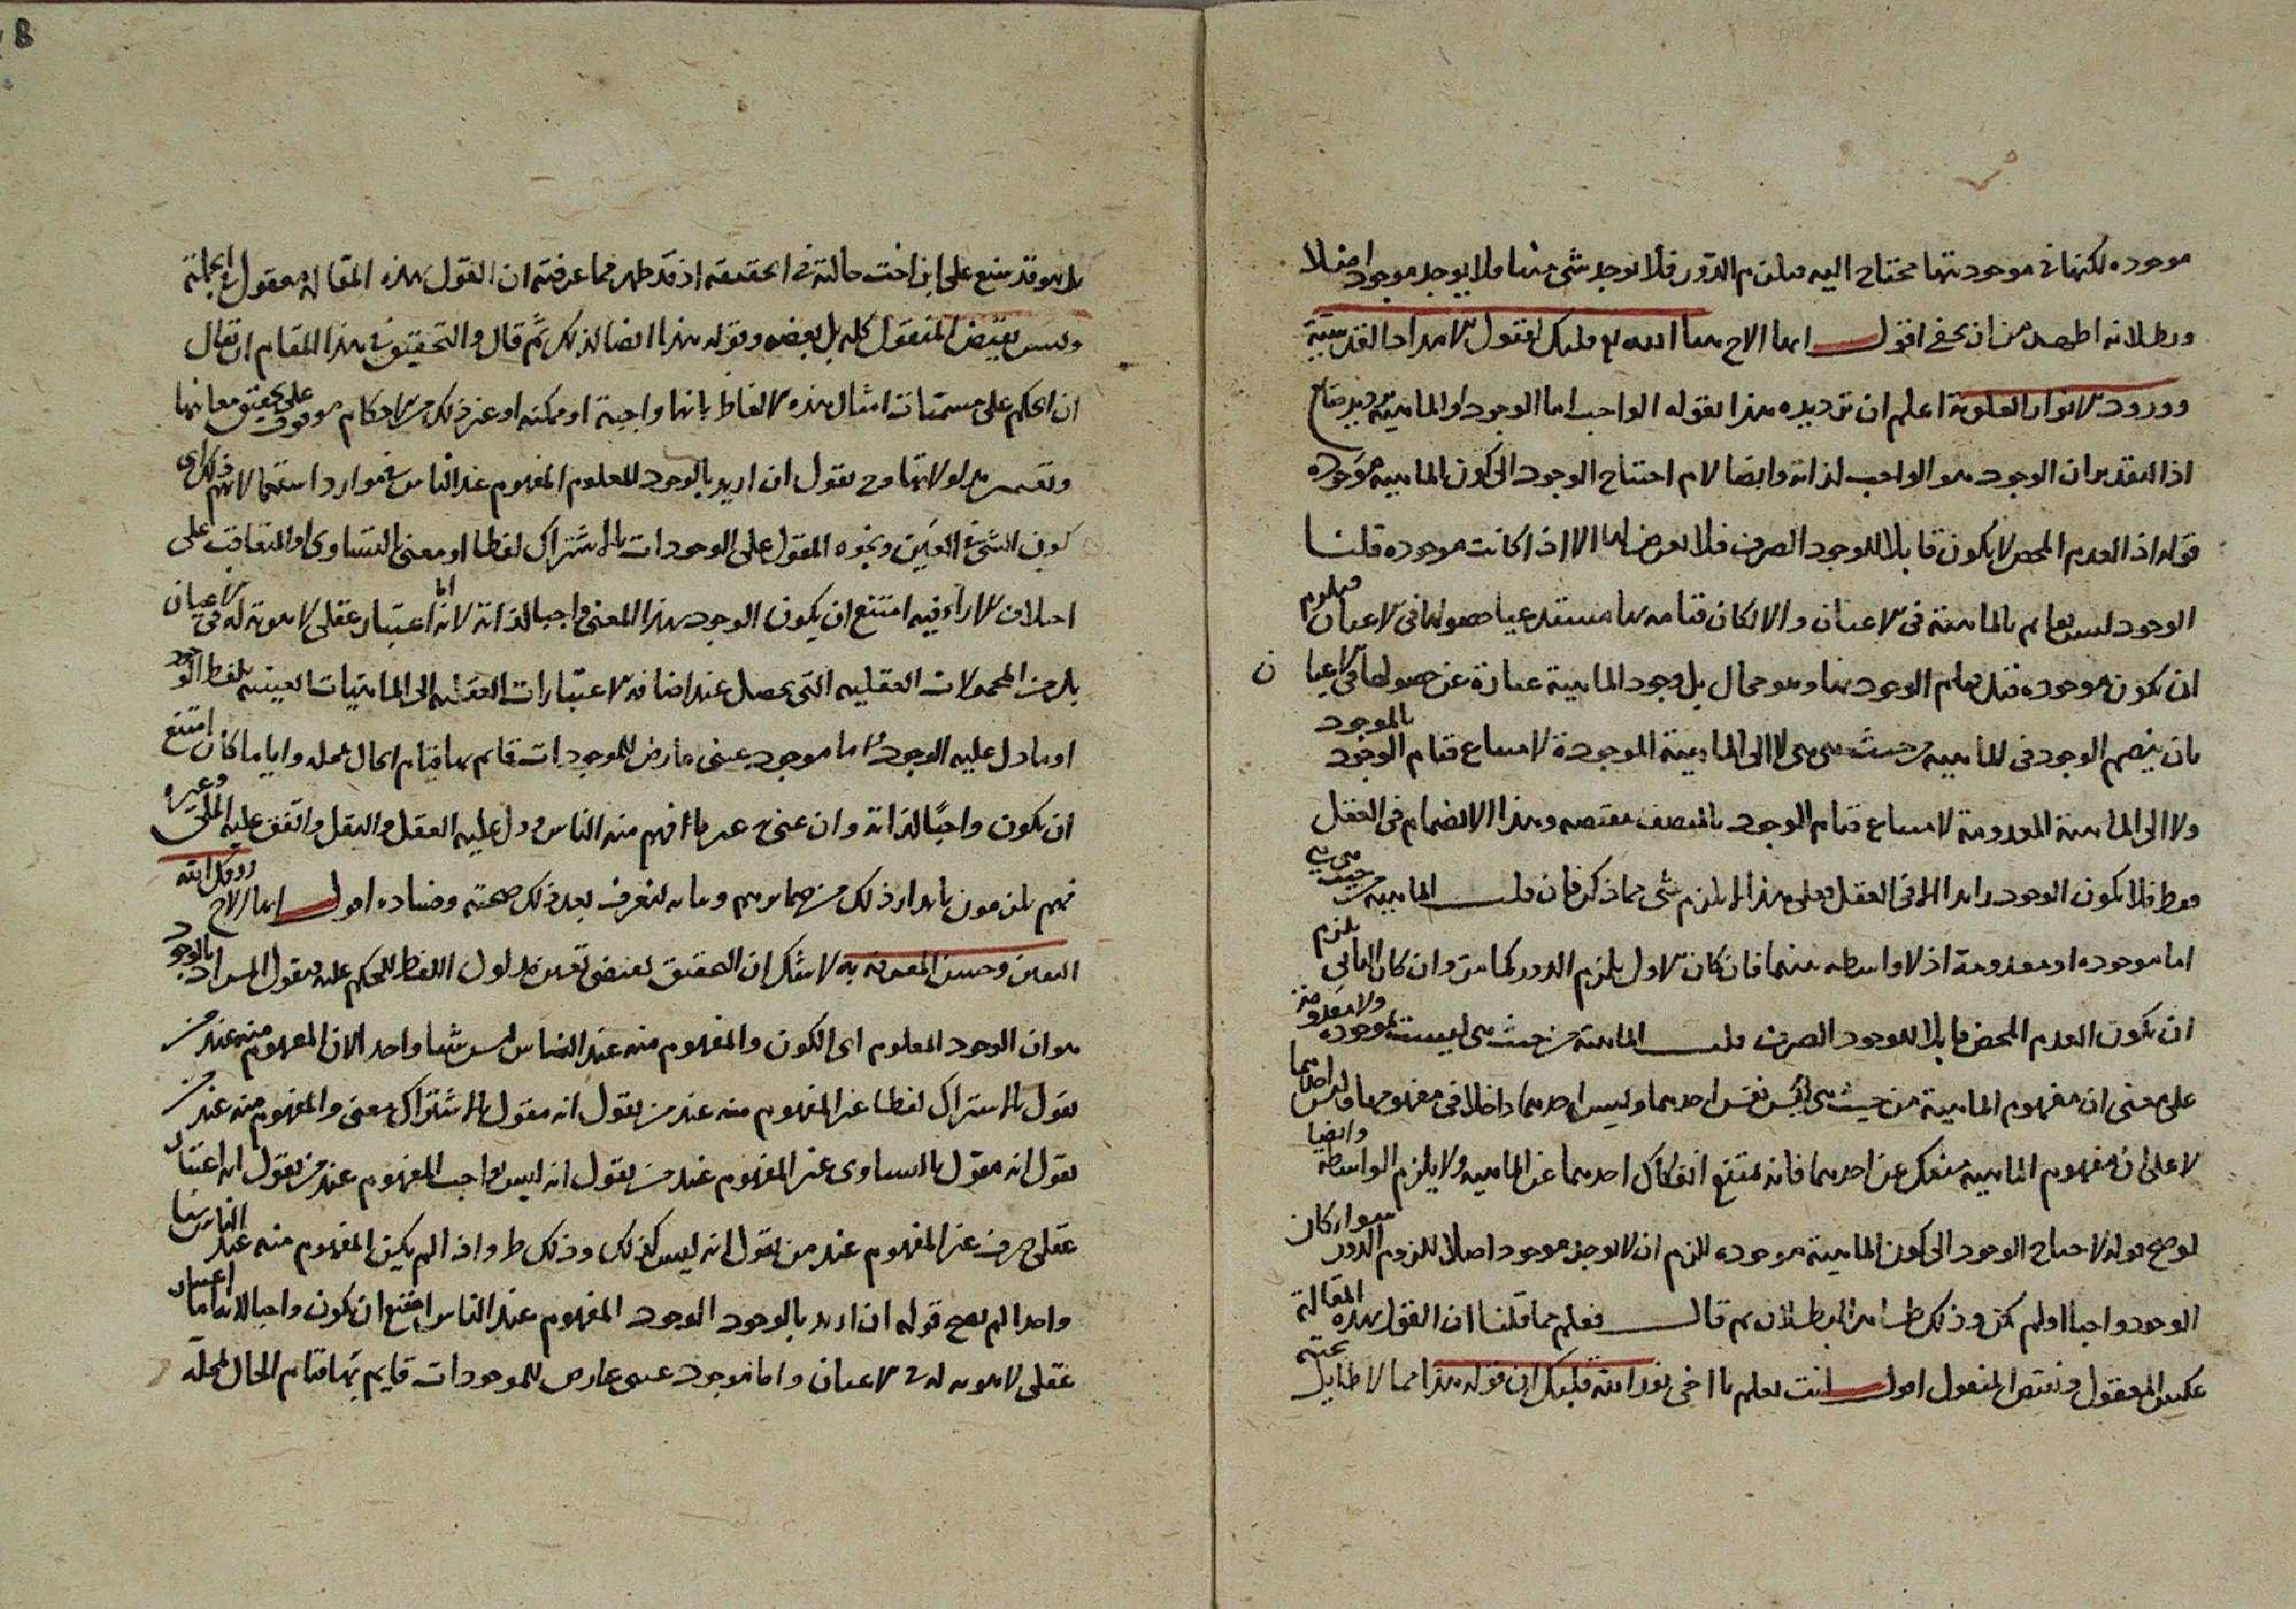 موجوده لكنها فى موجوديتها محتاج اليه فيلزم الدور فلا يوجد شى منها ولا يوجد موجود اصلا
وبطلانه اظهر من ان يخفى اقول ايها الاخ هيا الله تع قلبك لقبول الامداد القدسية
وورود الانوار العلوية اعلم ان ترديده هذا بقوله الواجب اما الوجود او الماهية ترديد ضايع
اذ التقدير ان الوجود هو الواجب لذاته وايضا لا م احتياج الوجود الى كون الماهيه موجوده
قوله اذ العدم المحض لا يكون قابلا للوجود الصرف فلا يعرض لها الا اذا كانت موجوده قلنا
الوجود ليس بقايم بالماهية فى الاعيان والا لكان قيامه بها مستدعيا حصولها فى الاعيان فيلزم
ان تكون موجوده قبل قيام الوجود بها وهو محال بل وجود الماهية عبارة عن حصولها فى الاعيان
بان ينضم الوجود فى الماهيه من حيث هى هى لا الى الماهية الموجودة لامتناع قيام الوجود بالموجود
ولا الى الماهية المعدومة لامتناع قيام الوجود بالمتصف بنقيضه وهذا الانضمام فى العقل
فقط فلا يكون الوجود زايدا الا فى العقل وعلى هذا لا يلزم شى مما ذكر فان قلت الماهيه من حيث هى هى
اما موجوده او معدومة اذ لا واسطه بينهما فان كان الاول يلزم الدور كما مر وان كان الثانى يلزم
ان يكون العدم المحض قابلا للوجود الصرف قلت الماهية من حيث هى ليست بموجوده ولا معدومة
على معنى ان مفهوم الماهية من حيث هى ليس نفس احدهما وليس احدهما داخلا فى مفهومها
لا على ان مفهوم الماهيه منفك عن احدهما فانه يمتنع انفكاك احدهما عن الماهيه ولا يلزم الواسطة وايضا
لو صح قوله لاحتياج الوجود الى كون الماهية موجوده للزم ان لا يوجد موجود اصلا للزوم الدور سواء كان
الوجود واجبا او لم يكن وذلك ظاهر البطلان ثم قال فعلم مما قلنا ان القول بهذه المقالة
عكس المعقول ونقيض المنقول اقول انت تعلم يا اخى نور الله قلبك ان قوله هذا مما لا طايل تحته
بل هو قد على اخت خالته فى الحقيقه اذ قد ظهر مما عرفته ان القول بهذه المقاله معقول فى الجملة
وليس بنقيض المنقول كله بل بعضه وبقوله هذا ايضا لذلك ثم قال والتحقيق فى هذا المقام ان يقال
ان الحكم على مسميات امثال هذه الالفاظ بانها واجبة او ممكنه او غير ذلك من الاحكام موقوف على تحقيق معانيها
وتفسير مدلولاتها وح نقول ان اريد بالوجود المعلوم المفهوم عند الناس فى موارد استعمالاتهم وذلك اى
كون الشى فى العين ونحوه المقول على الوجودات بالاشتراك لفظا او معنى بالتساوى او التفاوت على
اختلاف الاراء فيه امتنع ان يكون الوجود بهذا المعنى واجبا لذاته لانه اما اعتبار عقلى لا هوية له فى الاعيان
بل من المحمولات العقليه التى يحصل عند اضافة الاعتبارات العقليه الى الماهيات العينيه بلفظ الوجود
او ما دل عليه الوجود واما موجود عينى عارض للموجودات قايم بها قيام الحال بمحله وايا ما كان امتنع
ان يكون واجبا لذاته وان عنى به غير ما افهم منه الناس ودل عليه العقل والنقل واتفق عليه الملى وغيره
فهم يلزمون بابراز ذلك من ضمايرهم وبيانه لنعرف بعد ذلك صحته وفساده اقول ايها الاخ رزقك الله
اليقين وحسن المعرفة به لا شك ان التحقيق يقتضى تعيين مدلول اللفظ للحكم عليه فنقول المراد بالوجود
هو ان الوجود المعلوم اى الكون والمفهوم منه عند الناس ليس شيا واحدا لان المفهوم منه عند من
يقول بالاشتراك لفظا غير المفهوم منه عند من يقول انه مقول بالاشتراك معنى والمفهوم منه عند من
يقول انه مقول بالتساوى غير المفهوم عند من يقول انه ليس بواجب المفهوم عند من يقول انه اعتبار
عقلى صرف غير المفهوم عند من يقول انه ليس كذلك وذلك ظ واذا لم يكن المفهوم منه عند الناس شيا
واحدا لم يصح قوله ان اريد بالوجود الوجود المفهوم عند الناس امتنع ان يكون واجبا لانه اما اعتبار
عقلى لا هويه له فى الاعيان واما موجود عينى عارض للموجودات قايم بها قيام الحال لمحله